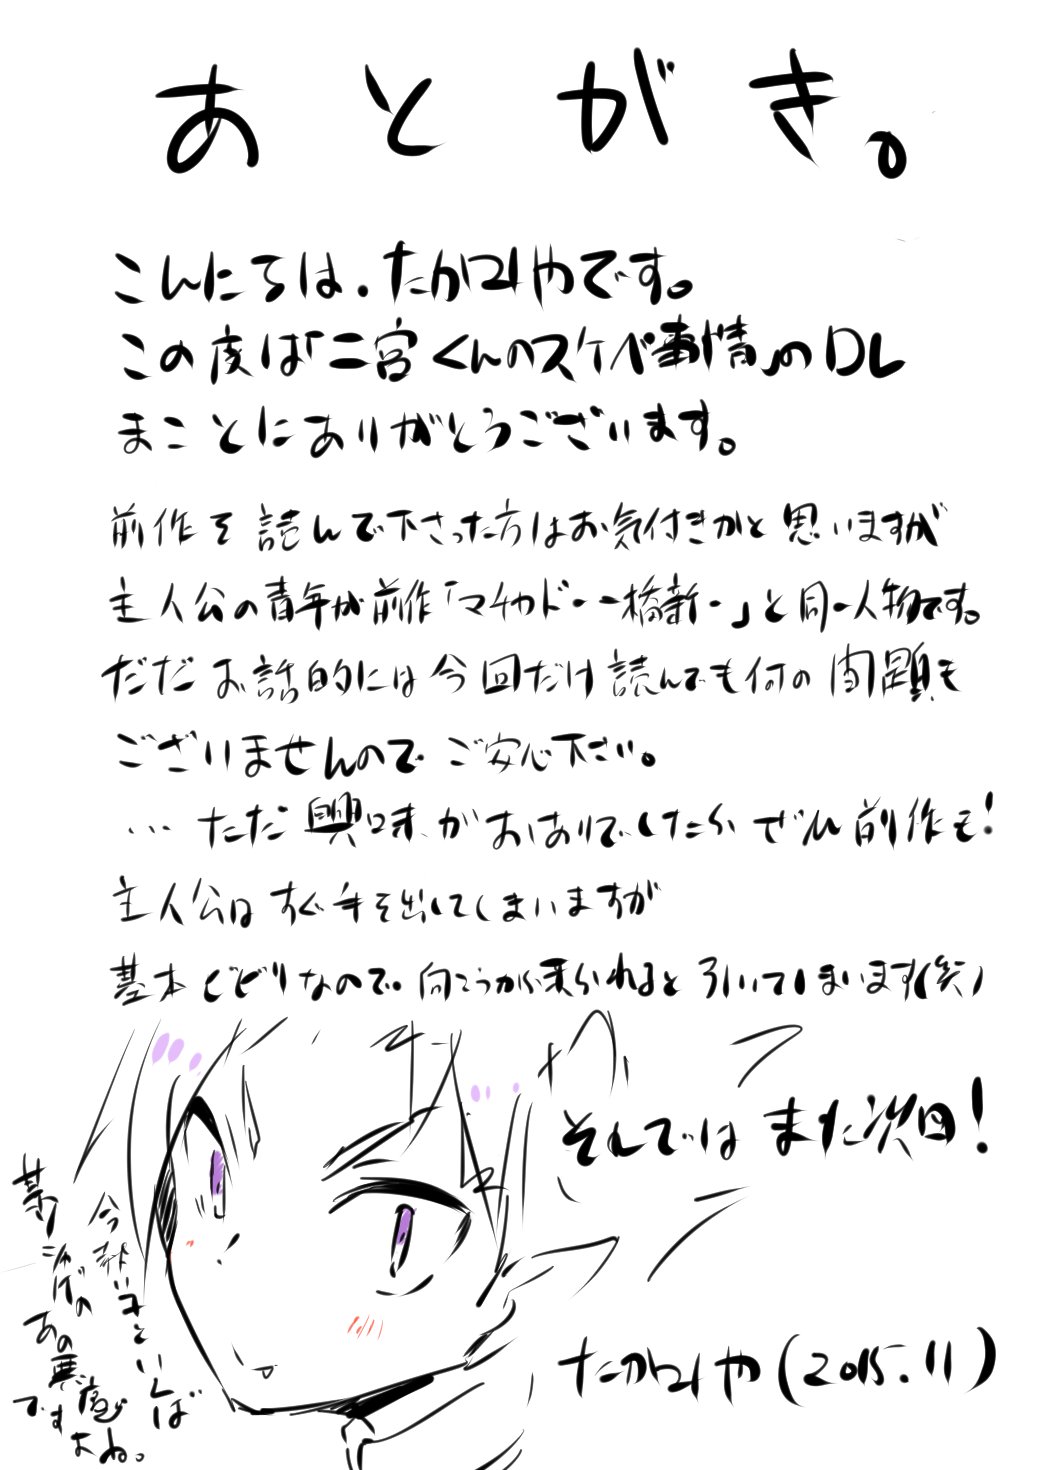 あとがき。
こんにちは、たかツリやです。
この度は「二宮くんのスケベ事情」のDL
まことにありがとうございます。
前作を読んで下さった方はお気付きかと思いますが
主人公の青年が前作「マチカドー一橋新一」と同一人物です。
だだお話的には今回だけ読んでも何の問題も
ございませんのでご安心下さい。
…ただ興味がおありでしたらぜひ前作も!
主人公はすぐ手を出してしまいますが
基本ビビりなので向こうから来られると引いてしまいます(笑)
それではまた次回!
今熱い子といえば
某ジャンプのあの悪魔ですよね。
(2015.11)